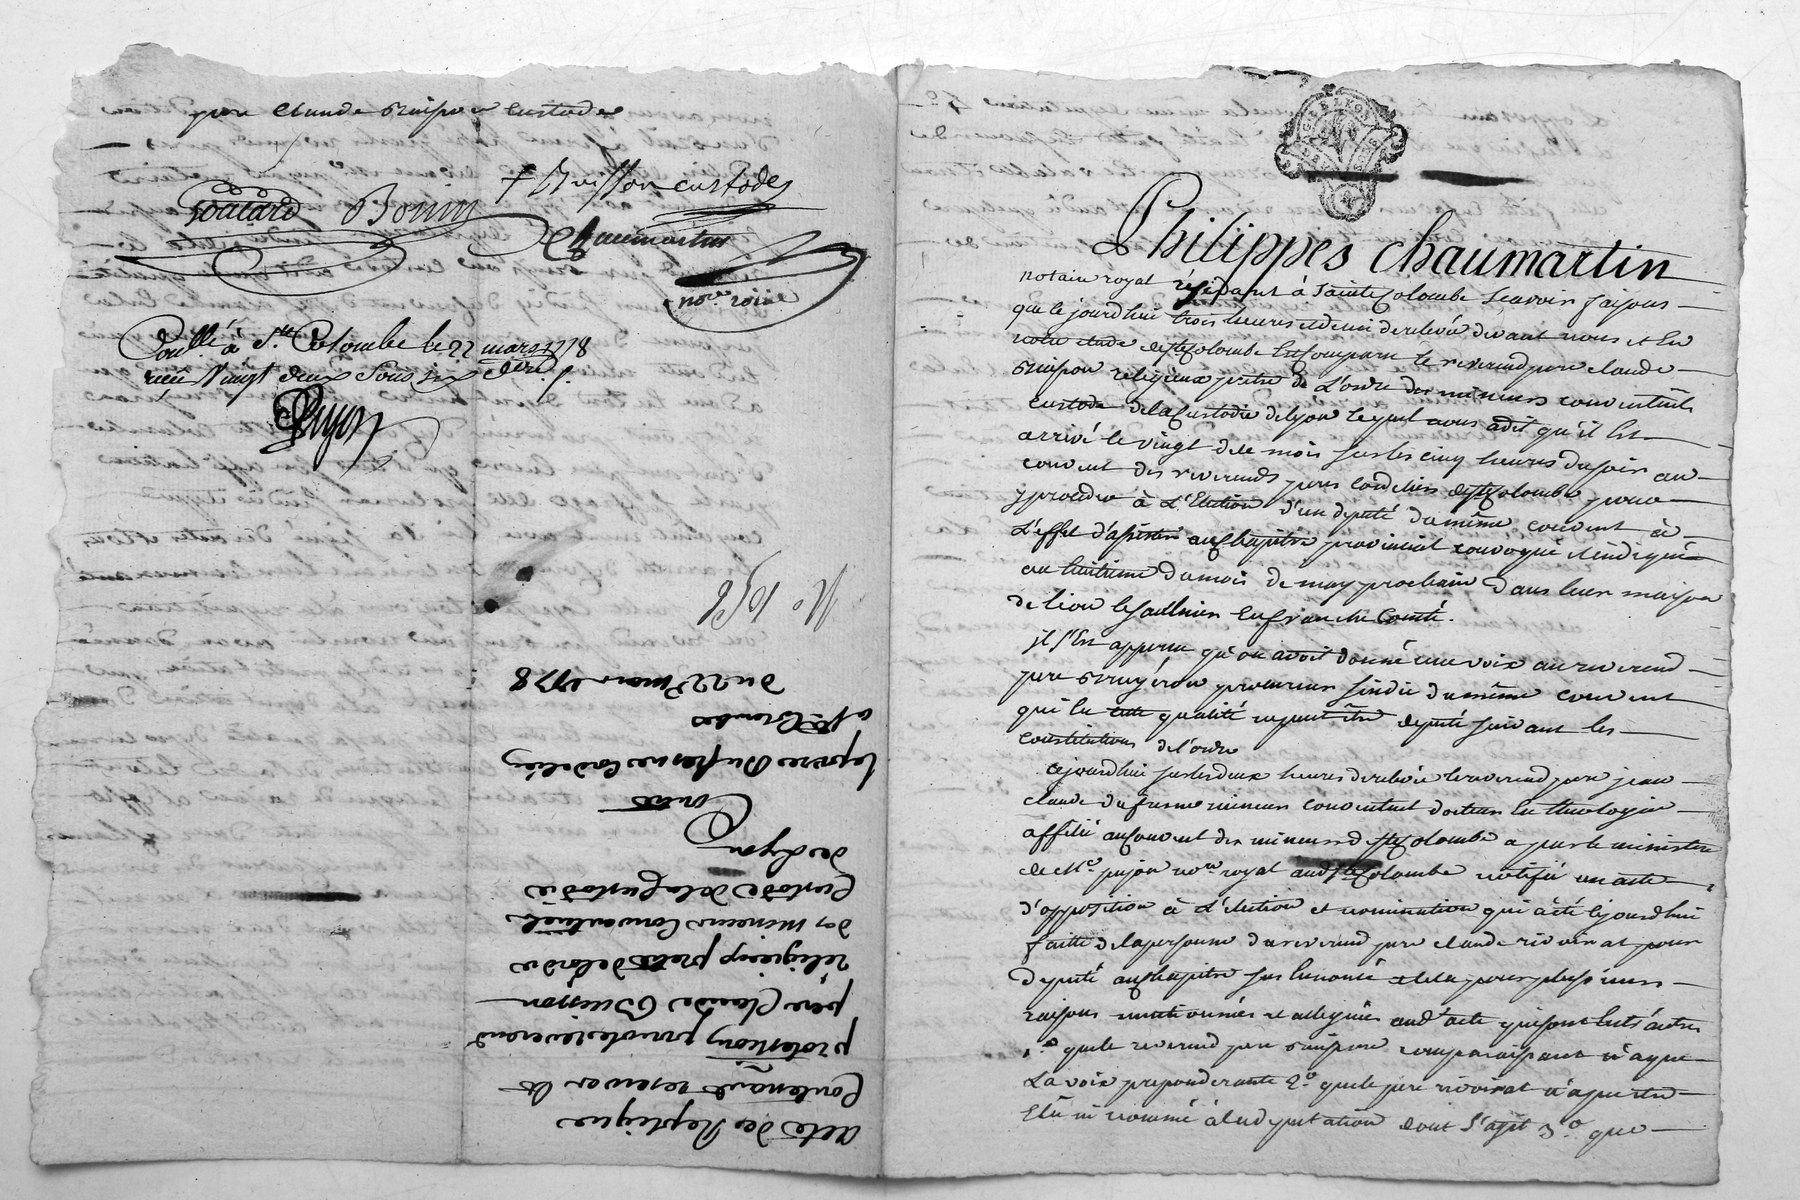 pere Claude Buisson Custode
Goutard Bonin + Buisson custode
Chaumartin
nore. roial
Conllé. à Ste. Colombe le 22 mars 1778
reçu Vingt deux Sous six den.
Pujon
N° 1056
acte de Replique
Contenant reserves et
protestions pour le reverend
père Claude Buisson
réligieux pretre de l'ordre
des mineurs Conventuels
Custode de la Custodie
de Lyon
Contre
le pere Dufresne Cordelier
à Ste. Colombe
du 22e mars 1778
GNALITE LYON
Philippes Chaumartin
notaire royal résidant à Sainte Colombe Scavoir faisons
que cejourdhui trois heures et demi de relevée devant nous et En
notre etude de Ste Colombe En comparu le reverend pere claude
Buisson religieux prêtre de L'ordre des mineurs conventuels
custode de la Custodie de lyon lequel nous a dit qu'il Est
arrivé le vingt de ce mois sur les cinq heures du soir au
couvent des reverends peres Cordeliers de Ste Colombe pour
proceder à L'Election d'un deputé du même couvent à
L'effet d'assister au Chapitre provincial convoqué et indiqué
au huitieme du mois de may prochain dans leur maison
de lion le Saulnier En franche Comté.
il s'Est apperçu qu'on avoit donné une voix au reverend
pere Bruyéron procureur sindic du même couvent
qui En cette qualité ne peut être deputé suivant les
constitutions de l'ordre
cejourdhui sur les deux heures de relevée le reverend pere jean
claude dufresne mineur conventuel docteur En theologie
affilié au Couvent des mineurs de Ste Colombe a par le ministere
de Me. pujon nore royal aud. Ste Colombe notifié un acte
d'opposition à L'élection et nomination qui a été cejourdhui
faitte de la personne du reverend pere claude rivoirat pour
deputé au Chapitre sus Enoncé et cela pour plusieurs
raisons mentionnées et alleguées aud. acte qui sont Entr'autres
1.° que le reverend pere Buisson comparaissant n'a que
La voix preponderante 2.° que le pere rivoirat n'a pu être
Elû ni nommé à la deputation dont S'agit 3.° que